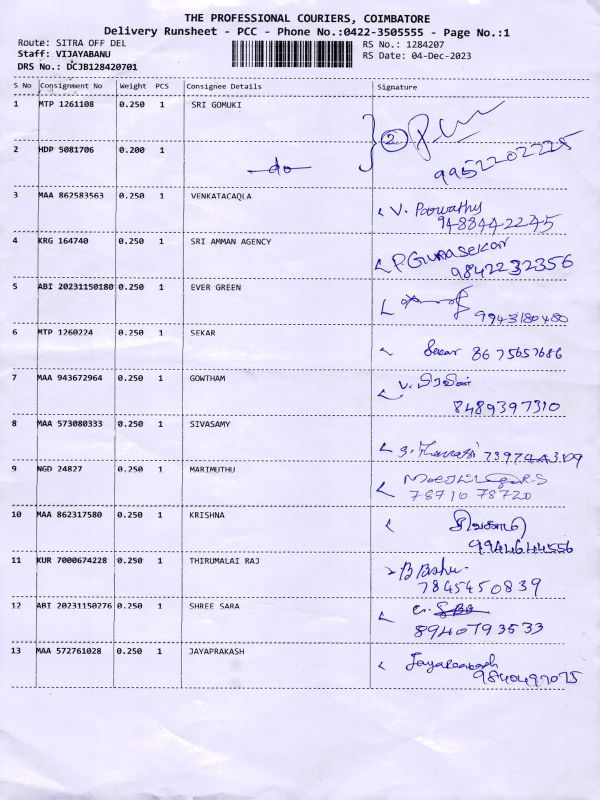 THE PROFESSIONAL COURIERS, COIMBATORE
Delivery Runsheet - PCC - Phone No.:0422-3505555 - Page No.:1
Route: SITRA OFF DEL RS No.: 1284207
Staff: VIJAYABANU RS Date: 04-Dec-2023
DRS No.: DCJB128420701
S No Consignment No Weight PCS Consignee Details Signature
1 MTP 1261108 0.250 1 SRI GOMUKI
2
2 HDP 5081706 0.200 1 -do- 9952202225
3 MAA 862583563 0.250 1 VENKATACAQLA V. Poorvathy
9488442245
4 KRG 164740 0.250 1 SRI AMMAN AGENCY P. Gunasekar
9842232356
5 ABI 20231150180 0.250 1 EVER GREEN
9943180480
6 MTP 1260224 0.250 1 SEKAR Sekar 8675657686
7 MAA 943672964 0.250 1 GOWTHAM
8489397310
8 MAA 573080333 0.250 1 SIVASAMY
9 NGD 24827 0.250 1 MARIMUTHU
76710 78720
10 MAA 862317580 0.250 1 KRISHNA
9944644556
11 KUR 7000674228 0.250 1 THIRUMALAI RAJ
7845450839
12 ABI 20231150276 0.250 1 SHREE SARA
8940793533
13 MAA 572761028 0.250 1 JAYAPRAKASH
9840497075